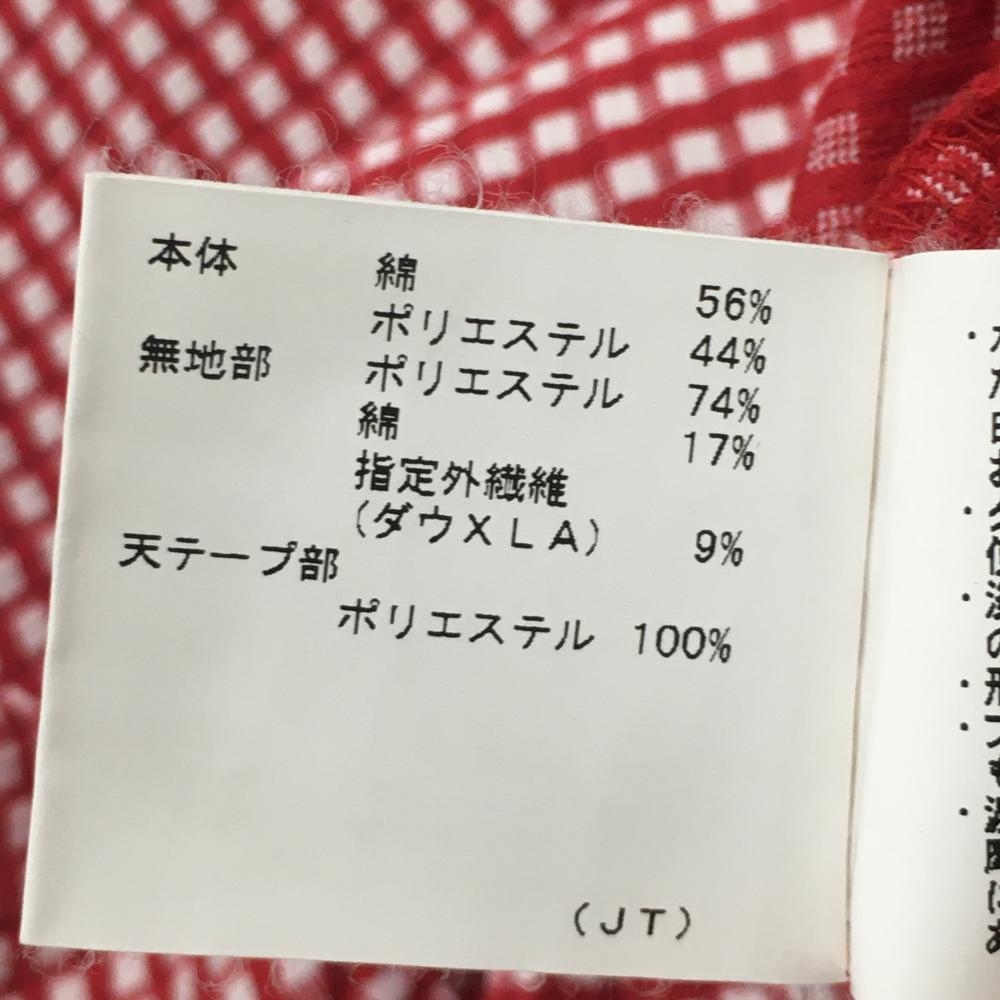 本体 綿 56%
ポリエステル 44%
無地部 ポリエステル 74%
綿 17%
指定外繊維
(ダウXLA) 9%
天テープ部
ポリエステル 100%
(JT)